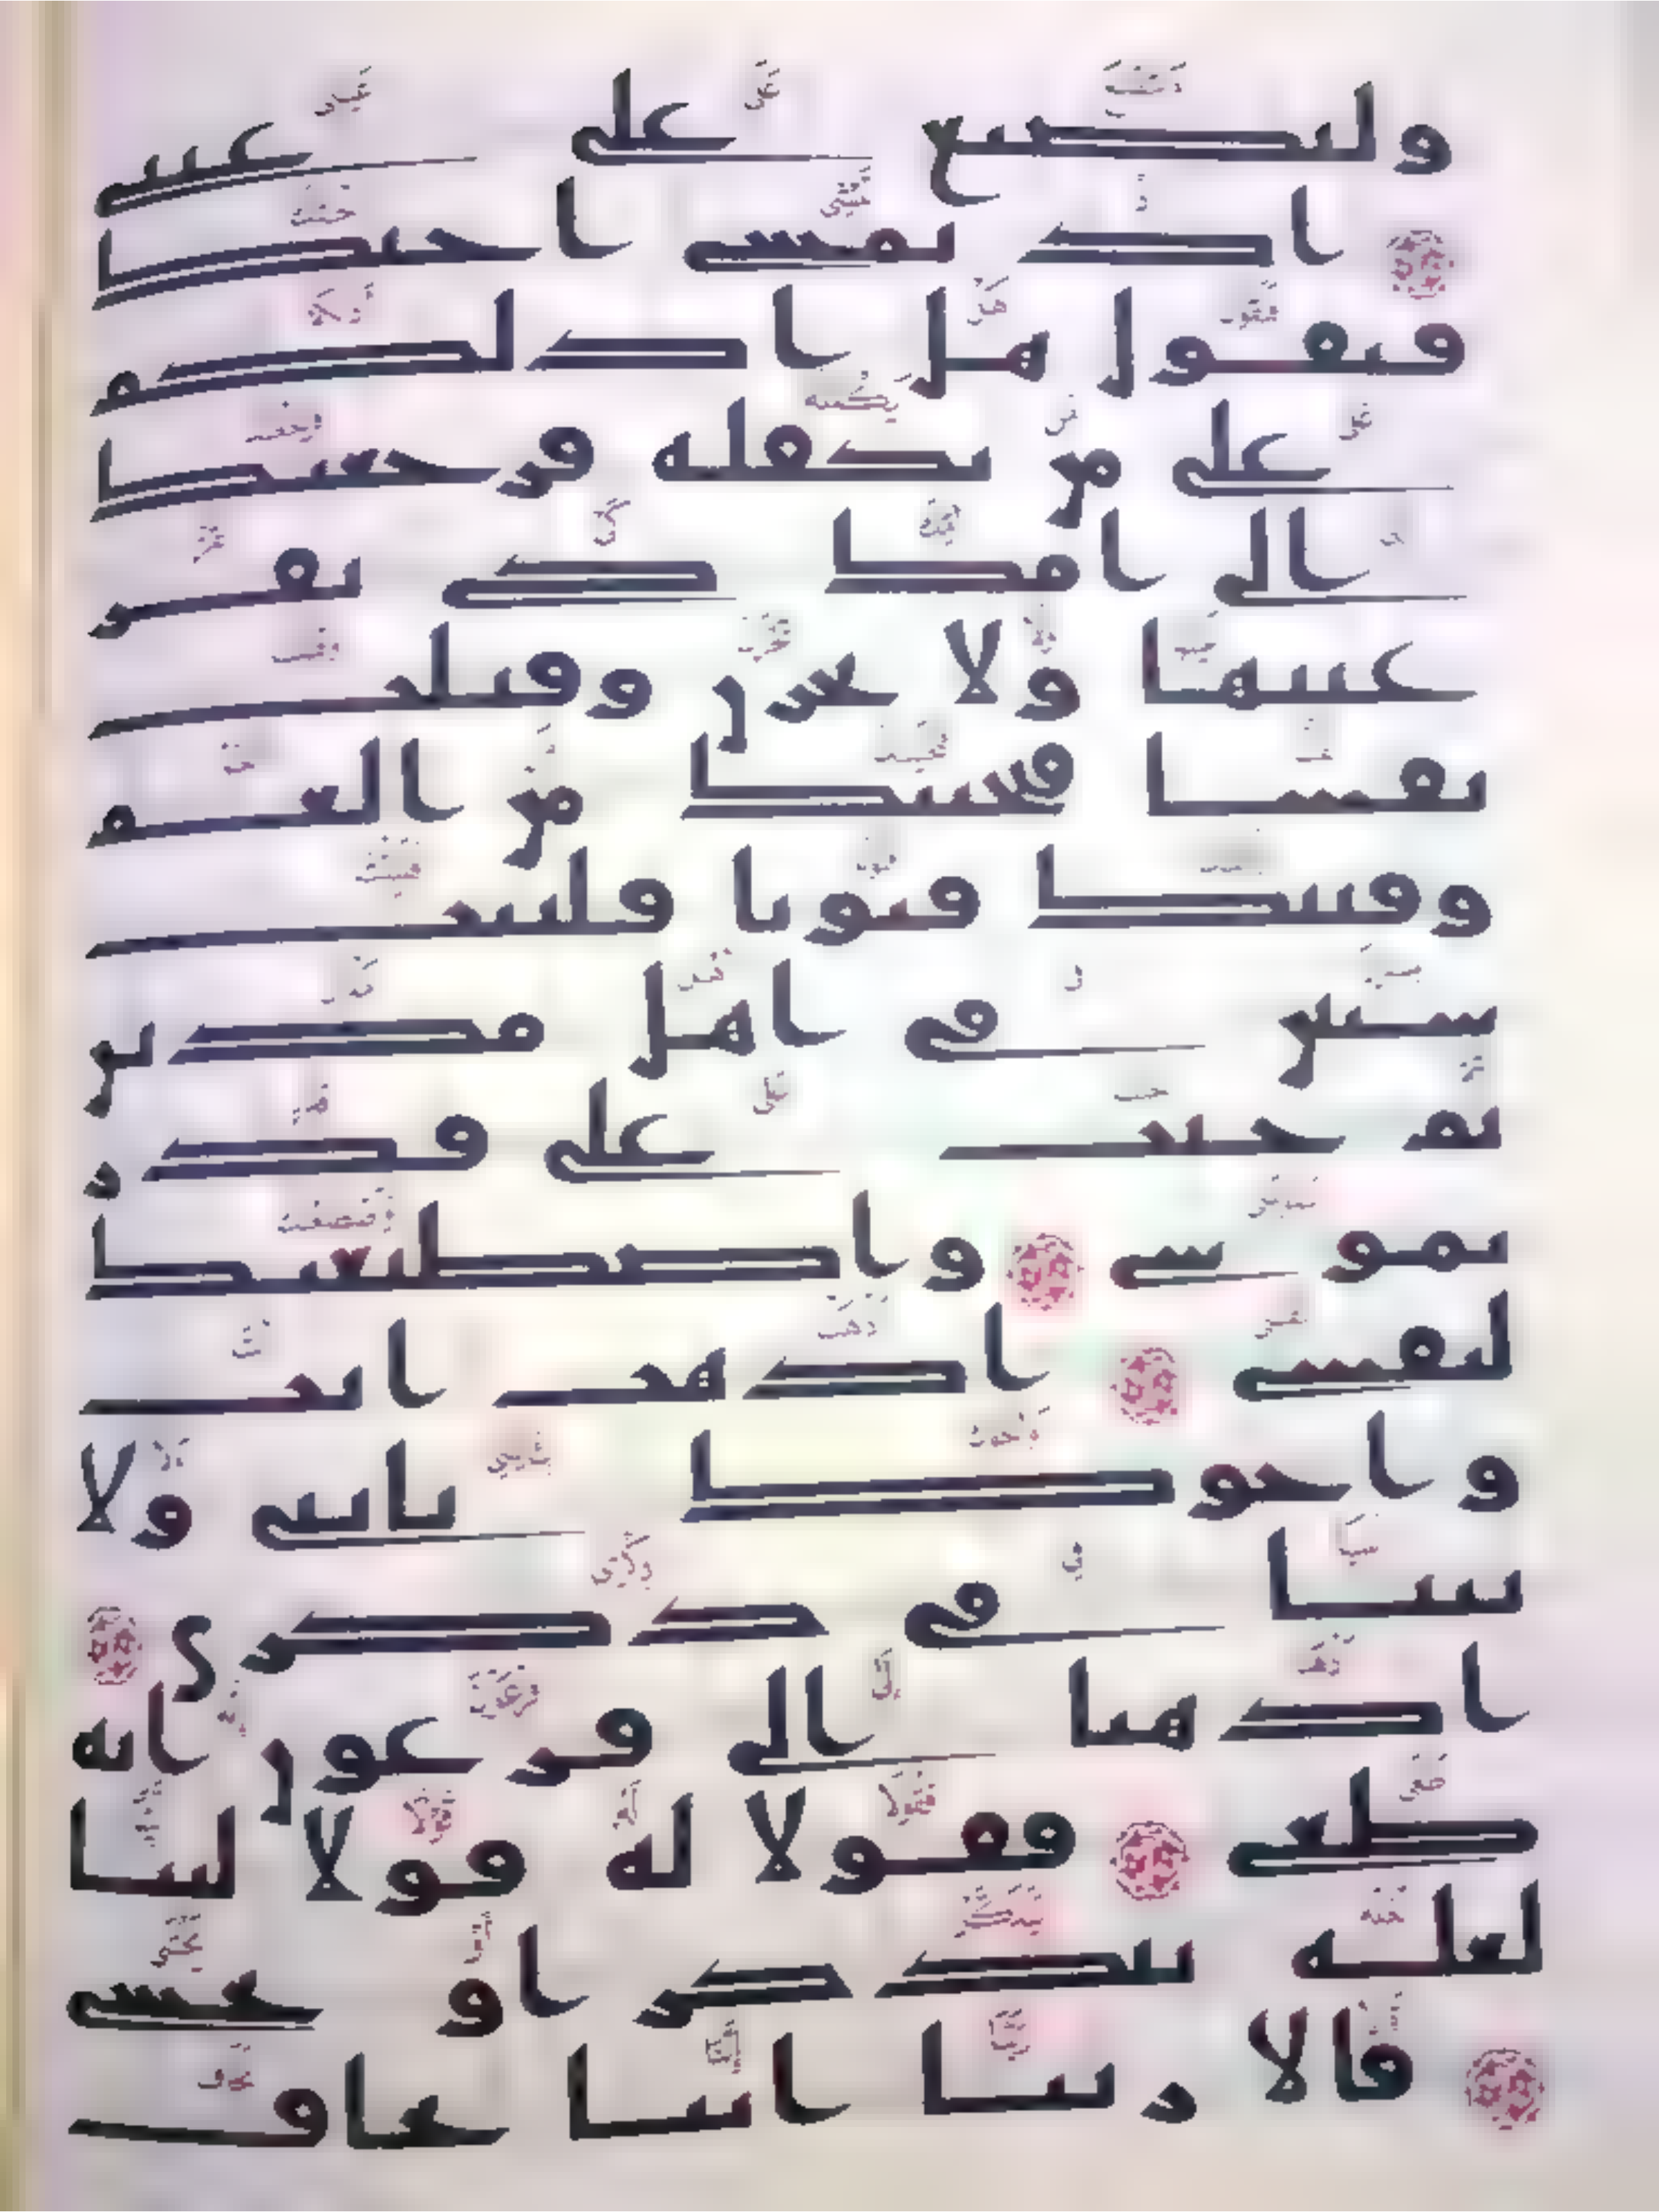 ولتصنع على عيني
اذ تمشي اختك
فتقول هل ادلكم
على من يكفله فرجعنك
الى امك كي تقر
عينها ولا تحزن وقتلت
نفسا فنجينك من الغم
وفتنك فتونا فلبثت
سنين في اهل مدين
ثم جئت على قدر
يموسى واصطنعتك
لنفسي اذهب انت
واخوك بايتي ولا
تنيا في ذكري
اذهبا الى فرعون انه
طغى فقولا له قولا لينا
لعله يتذكر او يخشى
قالا ربنا اننا نخاف